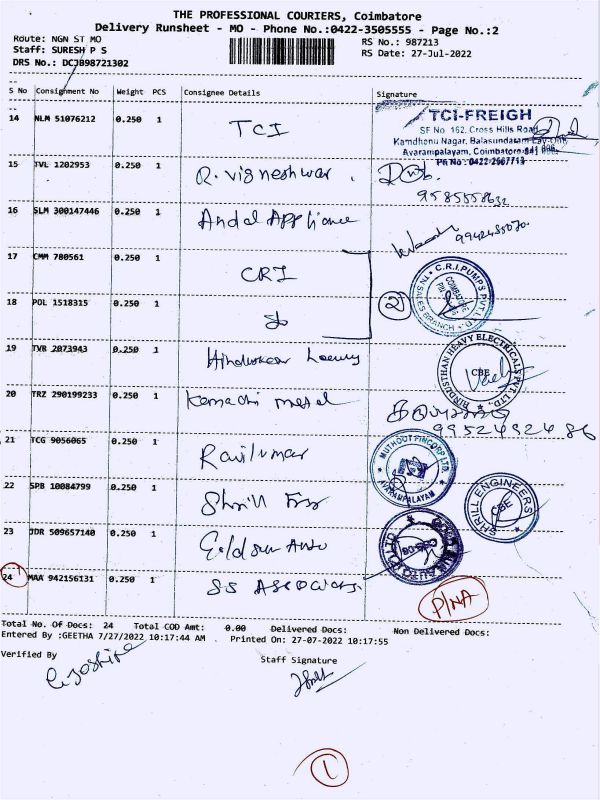 THE PROFESSIONAL COURIERS, Coimbatore
Delivery Runsheet - MO - Phone No.:0422-3505555 - Page No.:2
Route: NGN ST MO
RS No.: 987213
Staff: SURESH P S
RS Date: 27-Jul-2022
DRS No.: DCJB98721302
S No Consignment No Weight PCS Consignee Details Signature
14 NLM 51076212 0.250 1 TCI
TCI-FREIGH
SF No 162, Cross Hills Road
Kamdhenu Nagar, Balasundaram Lay-Out
Avarampalayam, Coimbatore-641 006.
Ph No: 0422-2567713
15 TVL 1202953 0.250 1 R. Vigneshwar.
16 SLM 300147446 0.250 1 Andal Appliance
17 CMM 780561 0.250 1 CRI
2
C.R.I.PUMPS PVT LTD. SALES BRANCH
18 POL 1518315 0.250 1
19 TVB 2873943 0.250 1
HINDUSTHAN HEAVY ELECTRICALS PVT. LTD.,
CBE
20 TRZ 290199233 0.250 1 Kamachi metal
9952492486
21 TCG 9056065 0.250 1 Ravikumar
MUTHOOT FINCORP LTD
AVARAMPALAYAM
22 SPB 10084799 0.250 1
SHRILL ENGINEERS
CBE
23 JDR 509657140 0.250 1
24 MAA 942156131 0.250 1 SS Associates.
P/NA
Total No. Of Docs: 24 Total COD Amt: 0.00 Delivered Docs: Non Delivered Docs:
Entered By :GEETHA 7/27/2022 10:17:44 AM Printed On: 27-07-2022 10:17:55
Verified By
Staff Signature
1